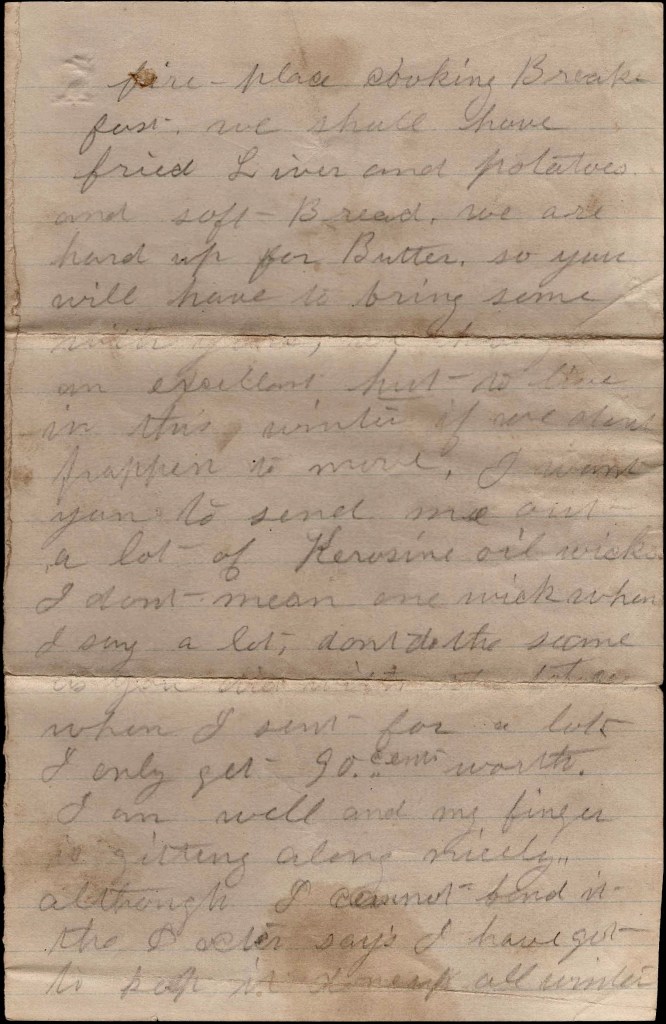 fire-place cooking Break-
fast. we shall have
fried Liver and potatoes
and soft-Bread. we are
hard up for Butter. so you
will have to bring some
with
an excellant hut to live
in this winter if we dont
happen to move. I want
you to send me out
a lot of Kerosine oil wicks
I dont mean one wick when
I say a lot, dont do the same
as you did with the
when I sent for a lot
I only get 90. cents worth.
I am well and my finger
is gitting along nicely,,
although I cannot bend it
the Docter says I have got
to keep it all winter